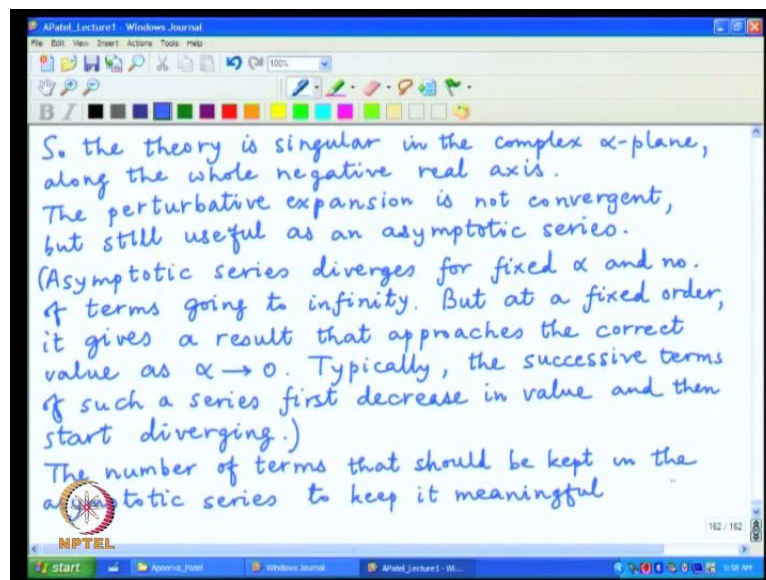 APatel_Lecture1 - Windows Journal
File Edit View Insert Actions Tools Help
100%
B I
So the theory is singular in the complex α-plane,
along the whole negative real axis.
The perturbative expansion is not convergent,
but still useful as an asymptotic series.
(Asymptotic series diverges for fixed α and no.
of terms going to infinity. But at a fixed order,
it gives a result that approaches the correct
value as α → 0. Typically, the successive terms
of such a series first decrease in value and then
start diverging.)
The number of terms that should be kept in the
asymptotic series to keep it meaningful
NPTEL
162 / 162
start Apoorva_Patel Windows Journal APatel_Lecture1 - Wi... 5:58 AM